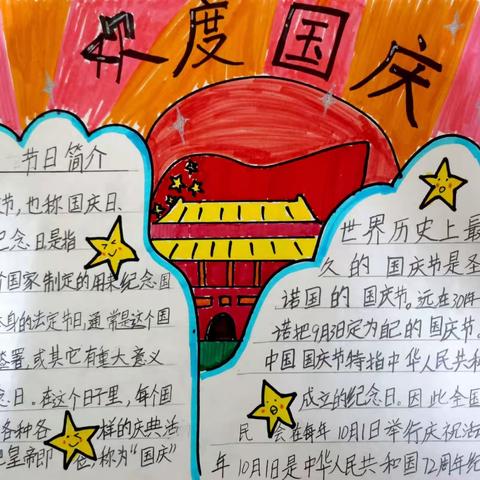 欢度国庆
节日简介
节,也称国庆日、
纪念日是指
个国家制定的用来纪念国
本身的法定节日,通常是这个国
签署,或其它有重大意义
念日。在这个日子里,每个国
各种各样的庆典活
把皇帝即位,称为“国庆”
世界历史上最
久的国庆节是圣
诺国的国庆节。远在301年
诺把9月3日定为自己的国庆节。
中国国庆节特指中华人民共和
成立的纪念日。因此全国
民会在每年10月1日举行庆祝活
年10月1日是中华人民共和国72周年纪